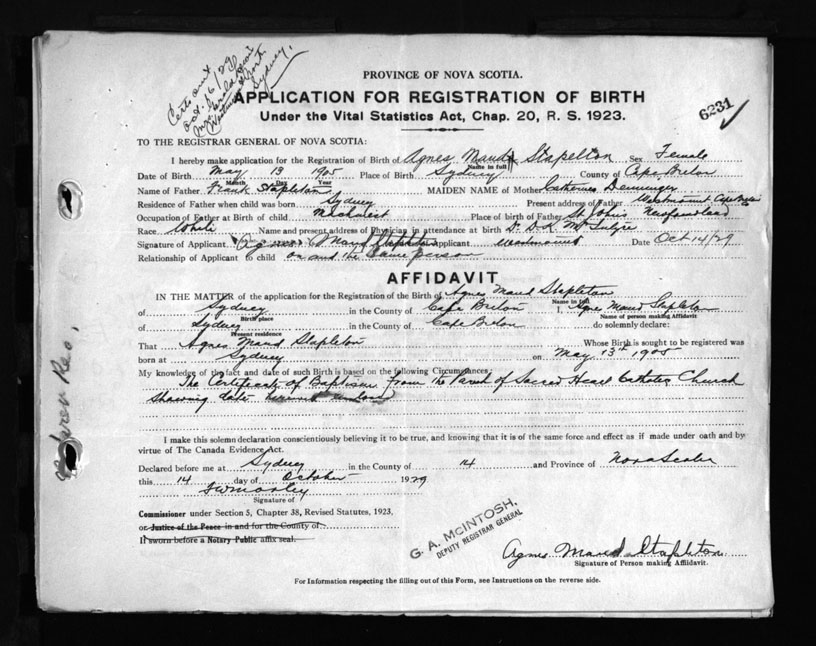 Certs sent
Oct. 16/29
Westmount
Sydney.
PROVINCE OF NOVA SCOTIA.
APPLICATION FOR REGISTRATION OF BIRTH
Under the Vital Statistics Act, Chap. 20, R. S. 1923.
6231
TO THE REGISTRAR GENERAL OF NOVA SCOTIA:
I hereby make application for the Registration of Birth of Agnes Maud Stapelton Sex Female
Name in full
Date of Birth May 13 1905 Place of Birth Sydney County of Cape Breton
Month Day Year
Name of Father Frank Stapleton MAIDEN NAME of Mother Catherine
Residence of Father when child was born Sydney Present address of Father Westmount Cape Breton
Occupation of Father at Birth of child Place of birth of Father St Johns Newfoundland
Race White Name and present address of Physician in attendance at birth Dr. D. K.
Signature of Applicant Agnes Maud Stapleton Applicant Westmount Date Oct 14/29
Relationship of Applicant child on and the same person
AFFIDAVIT
IN THE MATTER of the application for the Registration of the Birth of Agnes Maud Stapleton
Name in full
of Sydney in the County of Cape Breton I, Agnes Maud Stapleton
Birth place Name of person making Affidavit
of Sydney in the County of Cape Breton do solemnly declare:
Present residence
That Agnes Maud Stapleton Whose Birth is sought to be registered was
born at Sydney on May 13th 1905
My knowledge of the fact and date of such Birth is based on the following Circumstances
The Certificate of Baptism from the Parish of Sacred Heart Catholic Church
showing date
I make this solemn declaration conscientiously believing it to be true, and knowing that it is of the same force and effect as if made under oath and by
virtue of The Canada Evidence Act.
Declared before me at Sydney in the County of 14 and Province of Nova Scotia
this 14 day of October 1929
Signature of
Commissioner under Section 5, Chapter 38, Revised Statutes, 1923.
or Justice of the Peace in and for the County of
If sworn before a Notary Public affix seal.
G. A. McINTOSH,
DEPUTY REGISTRAR GENERAL
Agnes Maud Stapleton
Signature of Person making Affidavit.
For Information respecting the filling out of this Form, see Instructions on the reverse side.